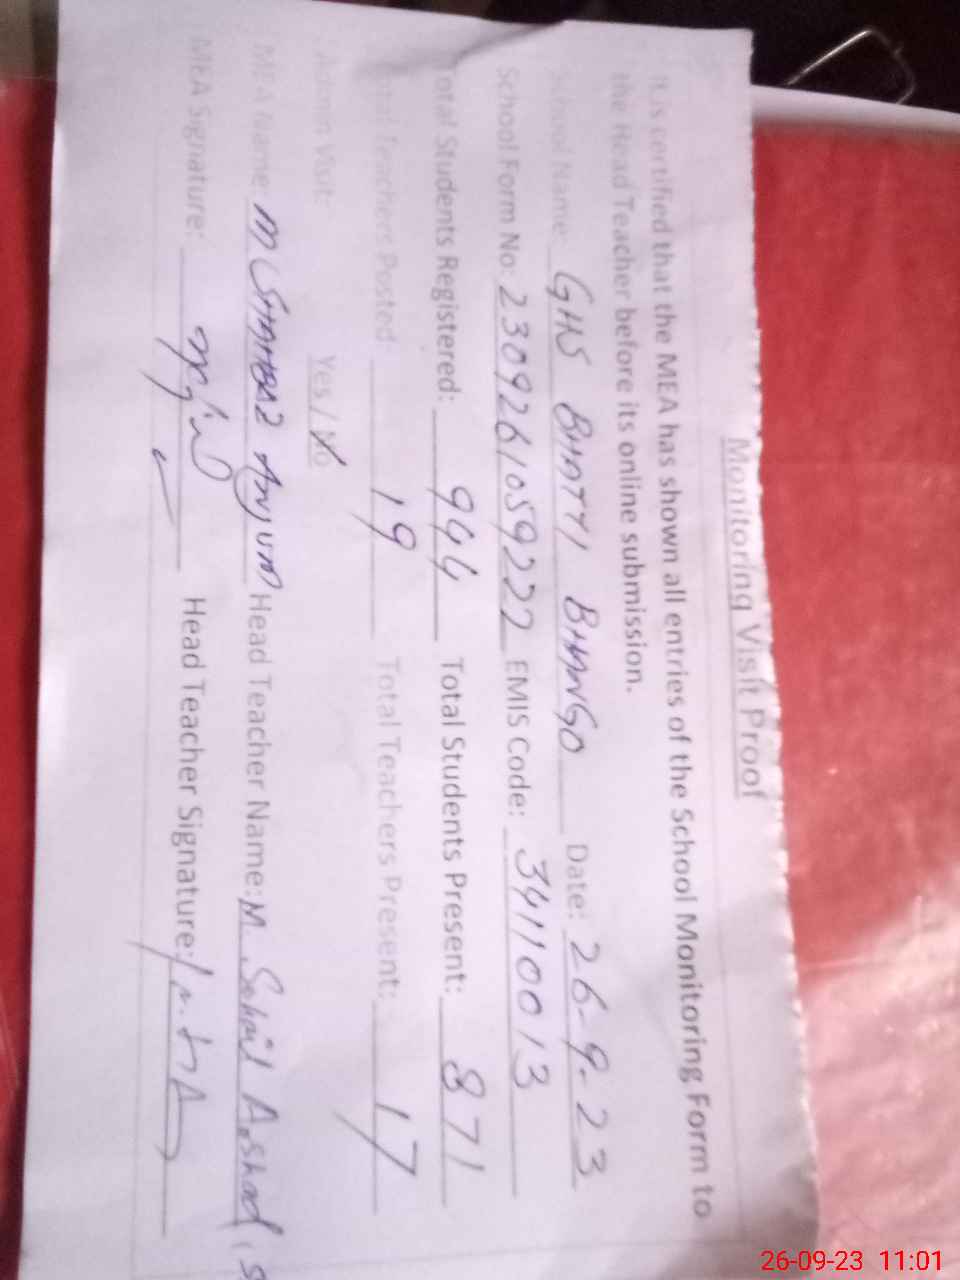 Monitoring Visit Proof
It is certified that the MEA has shown all entries of the School Monitoring Form to
the Head Teacher before its online submission.
School Name: GHS BHATTI BHANGO Date: 26-9-23
School Form No: 2309261059222 EMIS Code: 34110013
Total Students Registered: 944 Total Students Present: 871
Total Teachers Posted: 19 Total Teachers Present: 17
Admn Visit: Yes / No
MEA Name: M SHAHBAZ Anjum Head Teacher Name: M. Sohail Arshad (S
MEA Signature: Head Teacher Signature:
26-09-23 11:01